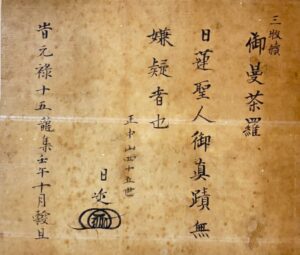 三枚續
御曼荼羅
日蓮聖人御真蹟無
嫌疑者也
正中山四十五世
日
旹元祿十五龍集壬午十月穀旦